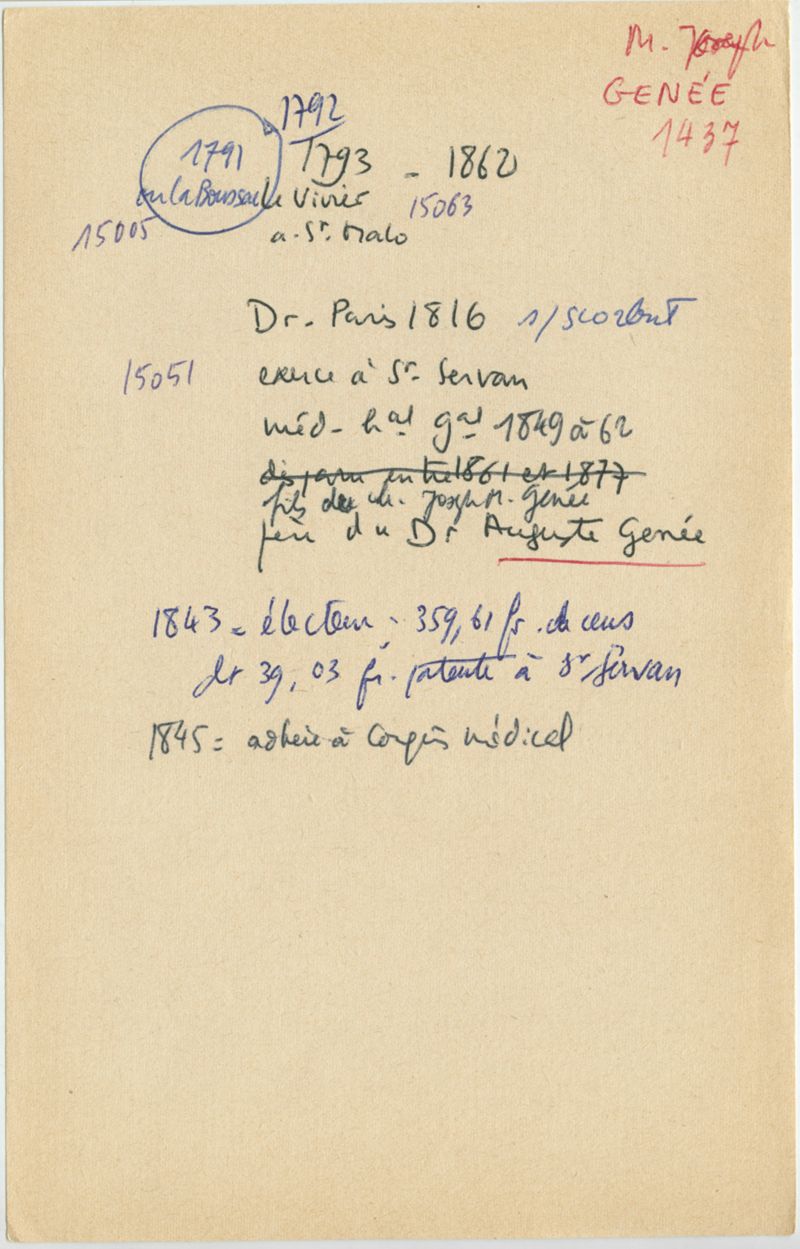 M. Joseph
GENÉE
1437
1792
1791 1793 - 1862
ou la Boussac Le Vivier 15063
15005 a. St. Malo
Dr. Paris 1816 s/scorbut
15051 exerce à St. Servan
méd. hal gal 1849 à 62
disparu entre 1861 et 1877
fils de M. Joseph M. Genée
père du Dr Auguste Genée
1843 = électeur, 359,61 fr. de cens
et 39,03 fr. patente à St Servan
1845 = adhère à Congrès médical